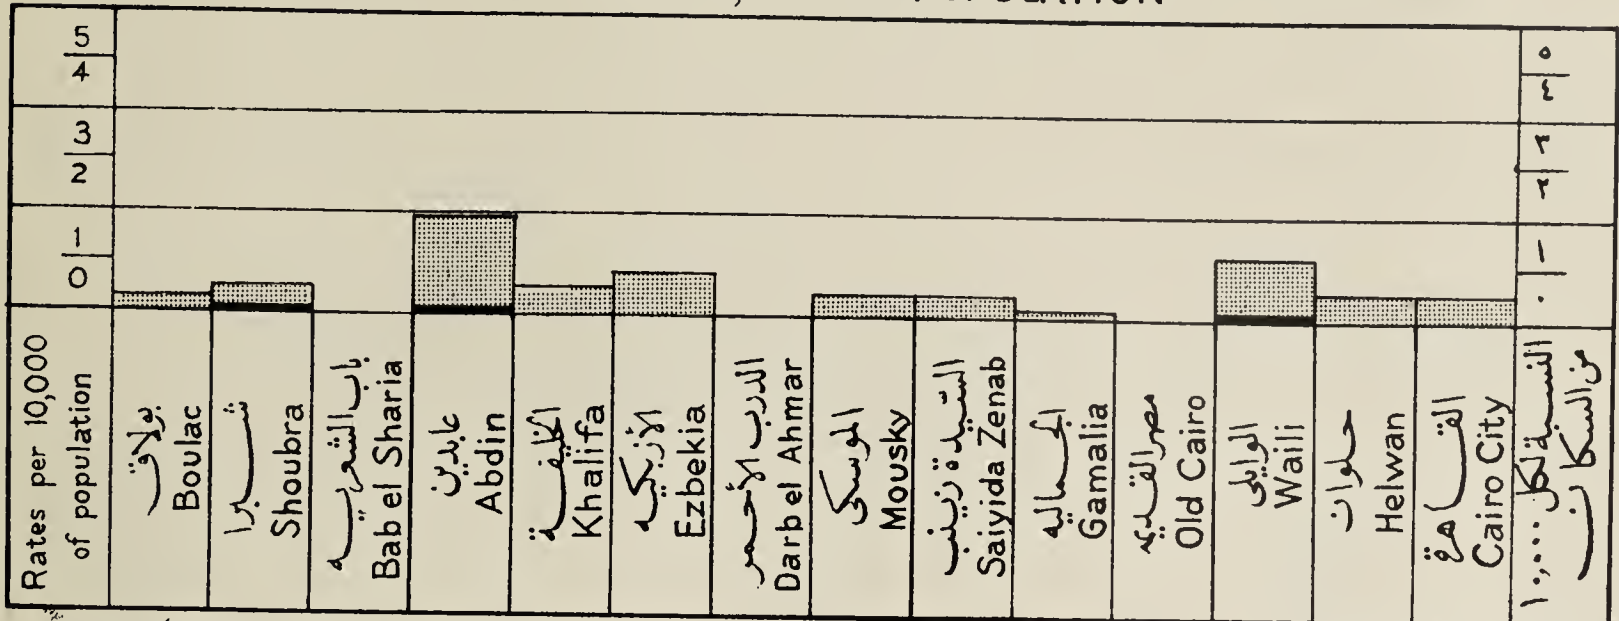 POPULATION
5
4
3
2
1
0
٥
٤
٣
٢
١
٠
Rates per 10,000
of population
بولاق
Boulac
شبرا
Shoubra
باب الشعريه
Bab el Sharia
عابدين
Abdin
الخليفة
Khalifa
الأزبكيه
Ezbekia
الدرب الأحمر
Darb el Ahmar
الموسكى
Mousky
السيدة زينب
Saiyida Zenab
الجماليه
Gamalia
مصر القديمه
Old Cairo
الوايلى
Waili
حلوان
Helwan
القاهرة
Cairo City
النسبة لكل ١٠,٠٠٠
من السكان